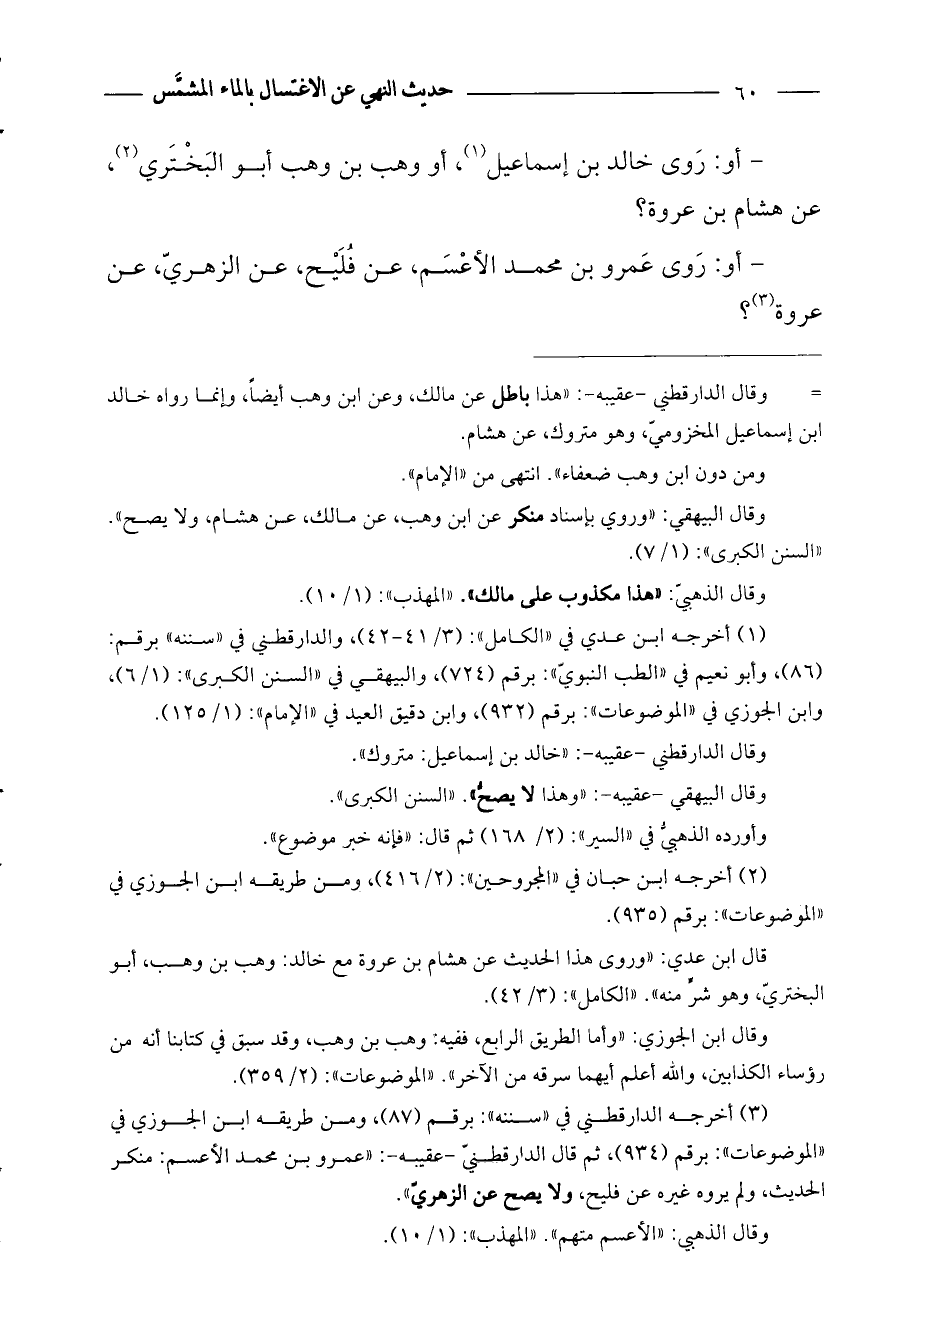 ٦٠ حديث النهي عن الاغتسال بالماء المشمَّس
– أو: رَوى خالد بن إسماعيل(١)، أو وهب بن وهب أبو البَخْتَري(٢)،
عن هشام بن عروة؟
– أو: رَوى عَمرو بن محمد الأعْسَم، عن فُلَيْح، عن الزهريّ، عن
عروة(٣)؟
= وقال الدارقطني -عقيبه-: «هذا باطل عن مالك، وعن ابن وهب أيضاً، وإنما رواه خالد
ابن إسماعيل المخزوميّ، وهو متروك، عن هشام.
ومن دون ابن وهب ضعفاء». انتهى من «الإمام».
وقال البيهقي: «وروي بإسناد منكر عن ابن وهب، عن مالك، عن هشام، ولا يصح».
«السنن الكبرى»: (١/ ٧).
وقال الذهبيّ: «هذا مكذوب على مالك». «المهذب»: (١/ ١٠).
(١) أخرجه ابن عدي في «الكامل»: (٣/ ٤١-٤٢)، والدارقطني في «سننه» برقم:
(٨٦)، وأبو نعيم في «الطب النبويّ»: برقم (٧٢٤)، والبيهقي في «السنن الكبرى»: (١/ ٦)،
وابن الجوزي في «الموضوعات»: برقم (٩٣٢)، وابن دقيق العيد في «الإمام»: (١/ ١٢٥).
وقال الدارقطني -عقيبه-: «خالد بن إسماعيل: متروك».
وقال البيهقي -عقيبه-: «وهذا لا يصحُّ». «السنن الكبرى».
وأورده الذهبيُّ في «السير»: (٢/ ١٦٨) ثم قال: «فإنه خبر موضوع».
(٢) أخرجه ابن حبان في «المجروحين»: (٢/ ٤١٦)، ومن طريقه ابن الجوزي في
«الموضوعات»: برقم (٩٣٥).
قال ابن عدي: «وروى هذا الحديث عن هشام بن عروة مع خالد: وهب بن وهب، أبو
البختريّ، وهو شرٌّ منه». «الكامل»: (٣/ ٤٢).
وقال ابن الجوزي: «وأما الطريق الرابع، ففيه: وهب بن وهب، وقد سبق في كتابنا أنه من
رؤساء الكذابين، والله أعلم أيهما سرقه من الآخر». «الموضوعات»: (٢/ ٣٥٩).
(٣) أخرجه الدارقطني في «سننه»: برقم (٨٧)، ومن طريقه ابن الجوزي في
«الموضوعات»: برقم (٩٣٤)، ثم قال الدارقطنيّ -عقيبه-: «عمرو بن محمد الأعسم: منكر
الحديث، ولم يروه غيره عن فليح، ولا يصح عن الزهريّ».
وقال الذهبي: «الأعسم متهم». «المهذب»: (١/ ١٠).